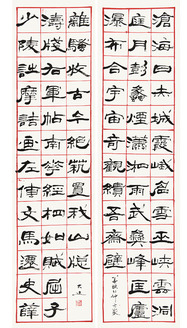 滄海日赤城霞峨眉雪巫峽雲洞
庭月彭蠡煙瀟湘雨武夷峰匡廬
瀑布合宇宙奇觀繢吾齋壁
少陵詩摩詰畫左傳文馬遷史薛
濤牋右軍帖南華經相如賦屈子
離騷收古今絕藝置我山窗